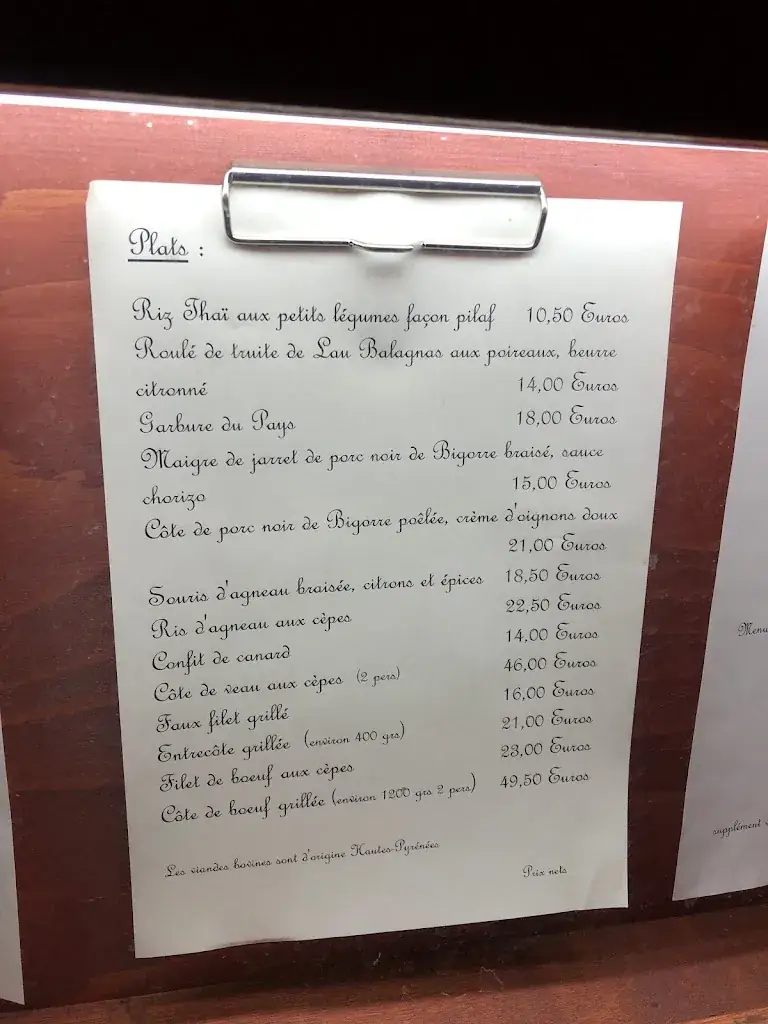 Plats :
Riz Thaï aux petits légumes façon pilaf 10,50 Euros
Roulé de truite de Lau Balagnas aux poireaux, beurre
citronné 14,00 Euros
Garbure du Pays 18,00 Euros
Maigre de jarret de porc noir de Bigorre braisé, sauce
chorizo 15,00 Euros
Côte de porc noir de Bigorre poêlée, crème d'oignons doux
21,00 Euros
Souris d'agneau braisée, citrons et épices 18,50 Euros
Ris d'agneau aux cèpes 22,50 Euros
Confit de canard 14,00 Euros
Côte de veau aux cèpes (2 pers) 46,00 Euros
Faux filet grillé 16,00 Euros
Entrecôte grillée (environ 400 grs) 21,00 Euros
Filet de boeuf aux cèpes 23,00 Euros
Côte de boeuf grillée (environ 1200 grs 2 pers) 49,50 Euros
Les viandes bovines sont d'origine Hautes-Pyrénées
Prix nets
Menu
supplément